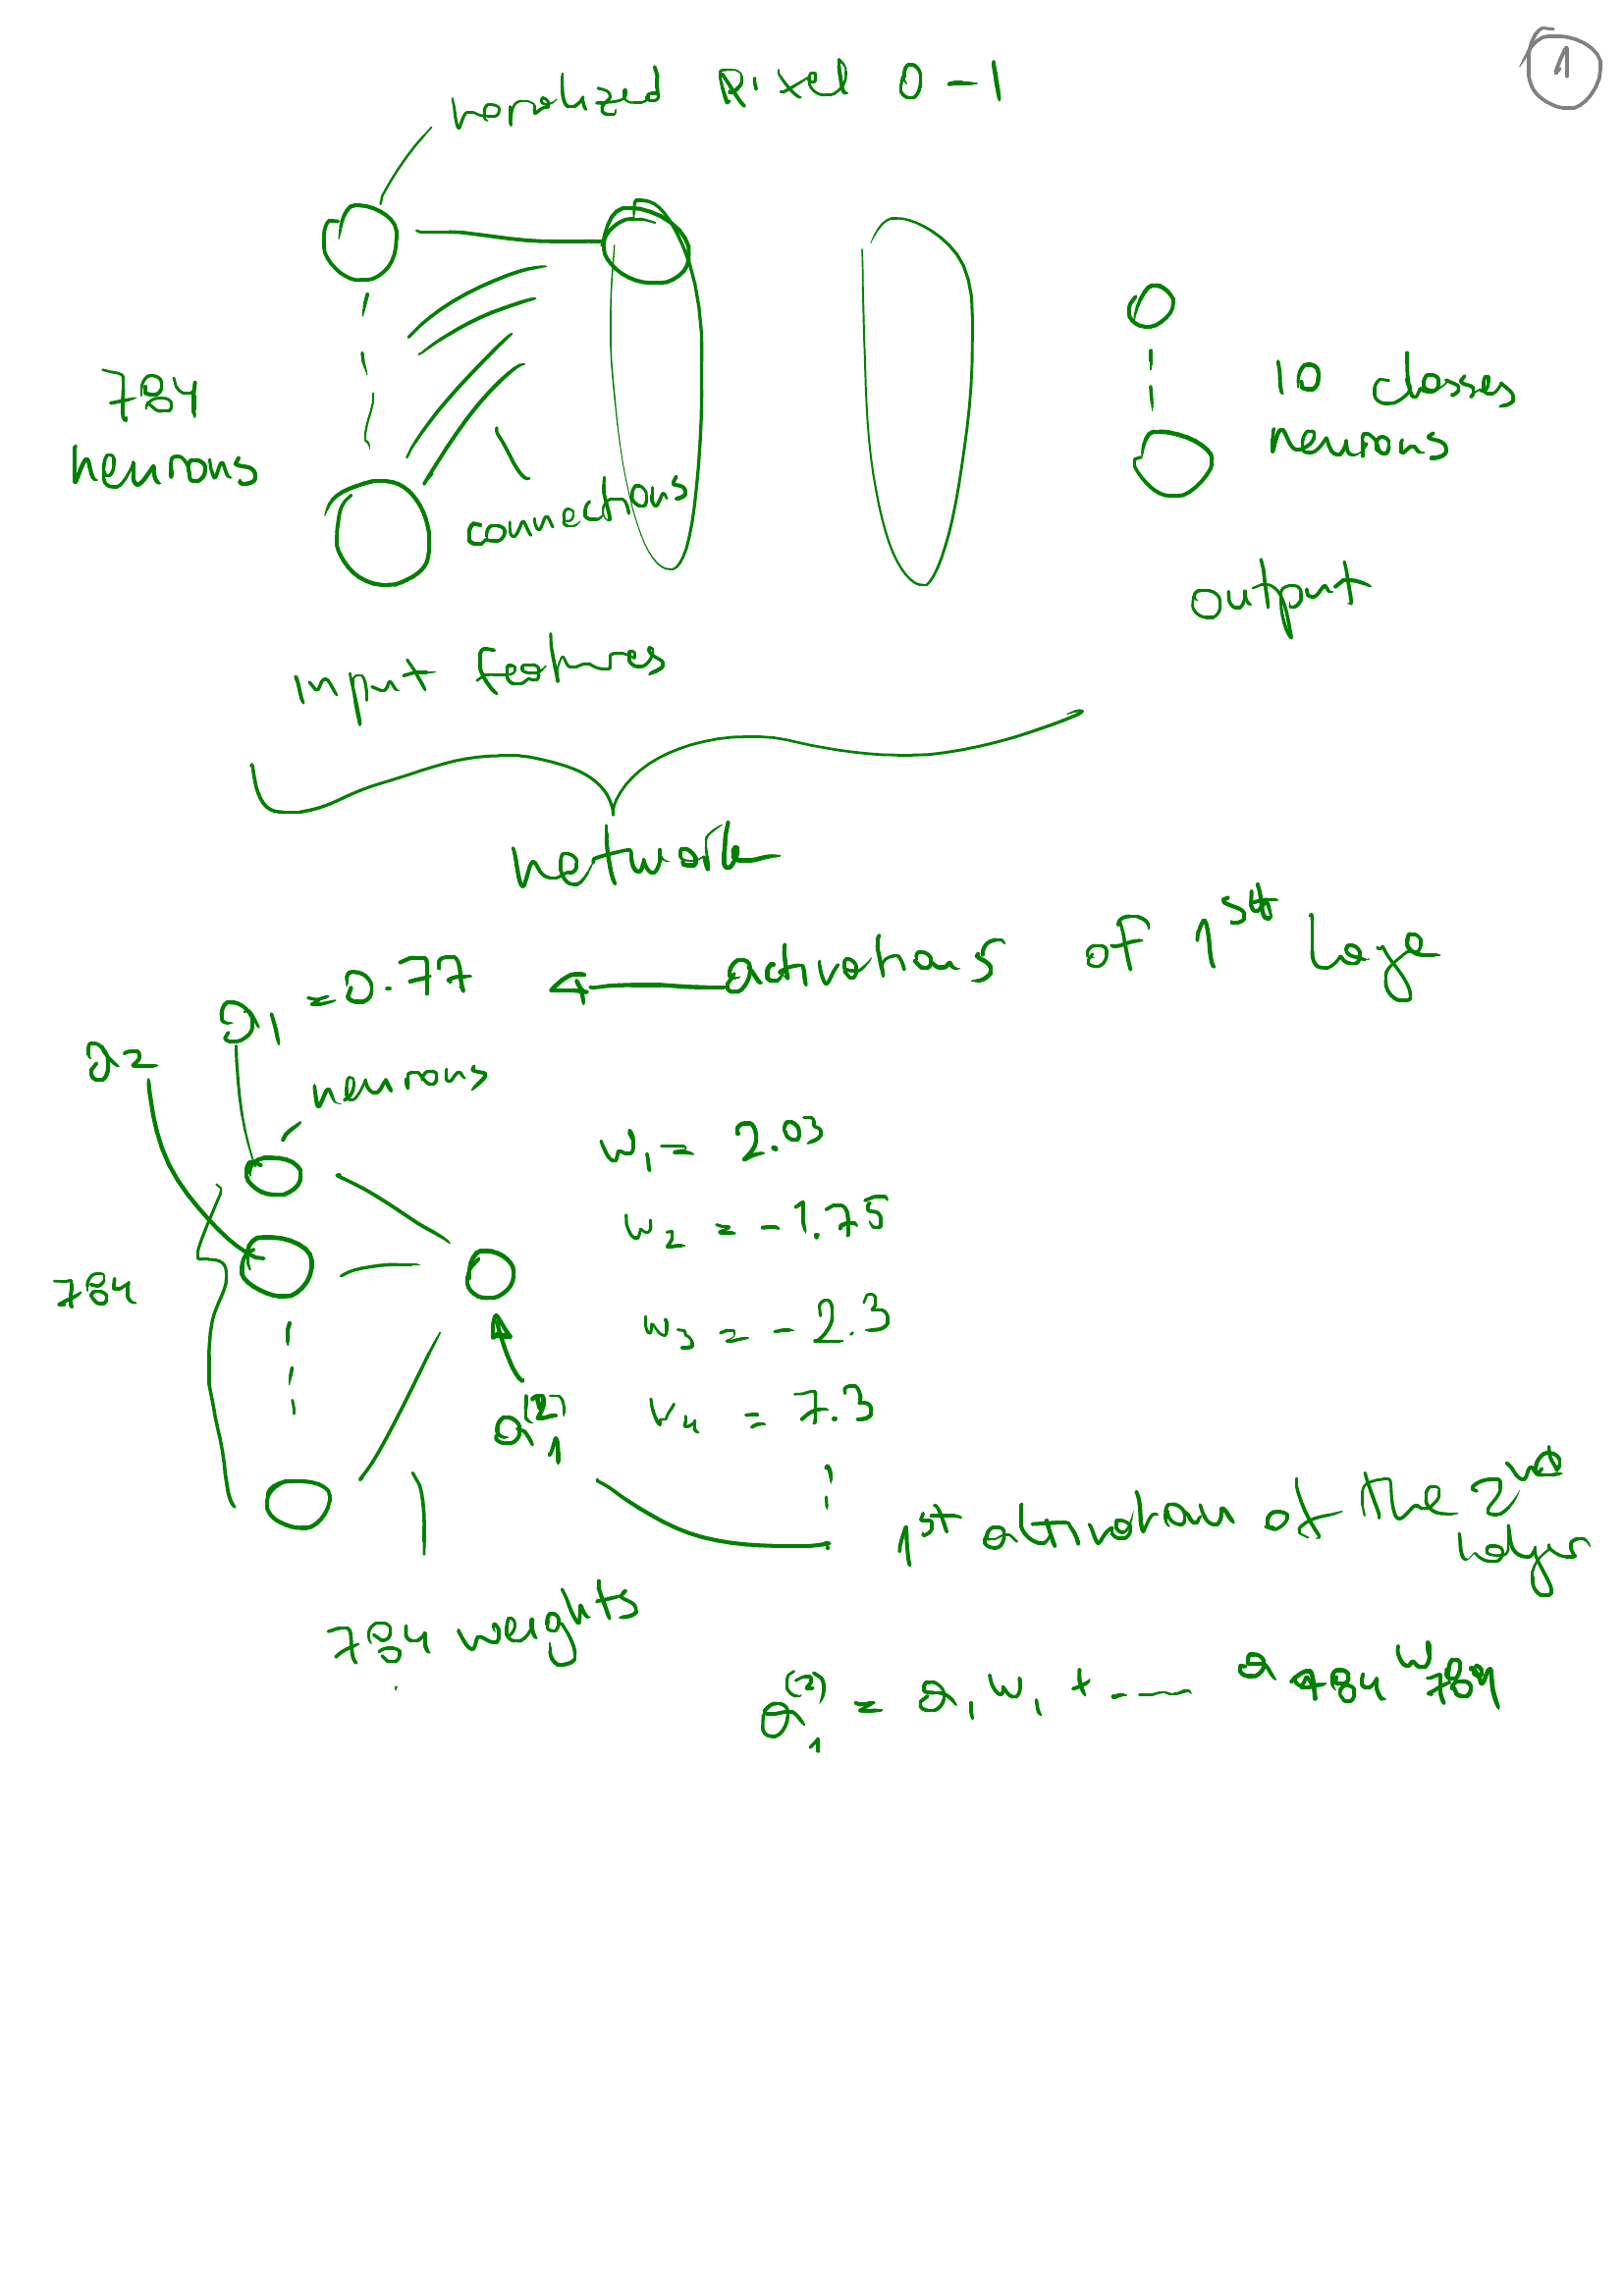 1
normalized Pixel 0-1
784
neurons
connections
10 classes
neurons
output
input features
network
a₁ = 0.77 ← activations of 1st laye
a2
neurons
w₁ = 2.03
w₂ = -1.75
784
w₃ = -2.3
w₄ = 7.3
a₁⁽²⁾
1st activation of the 2nd
layer
784 weights
a₁⁽²⁾ = a₁w₁ + --- a₇₈₄w₇₈₄